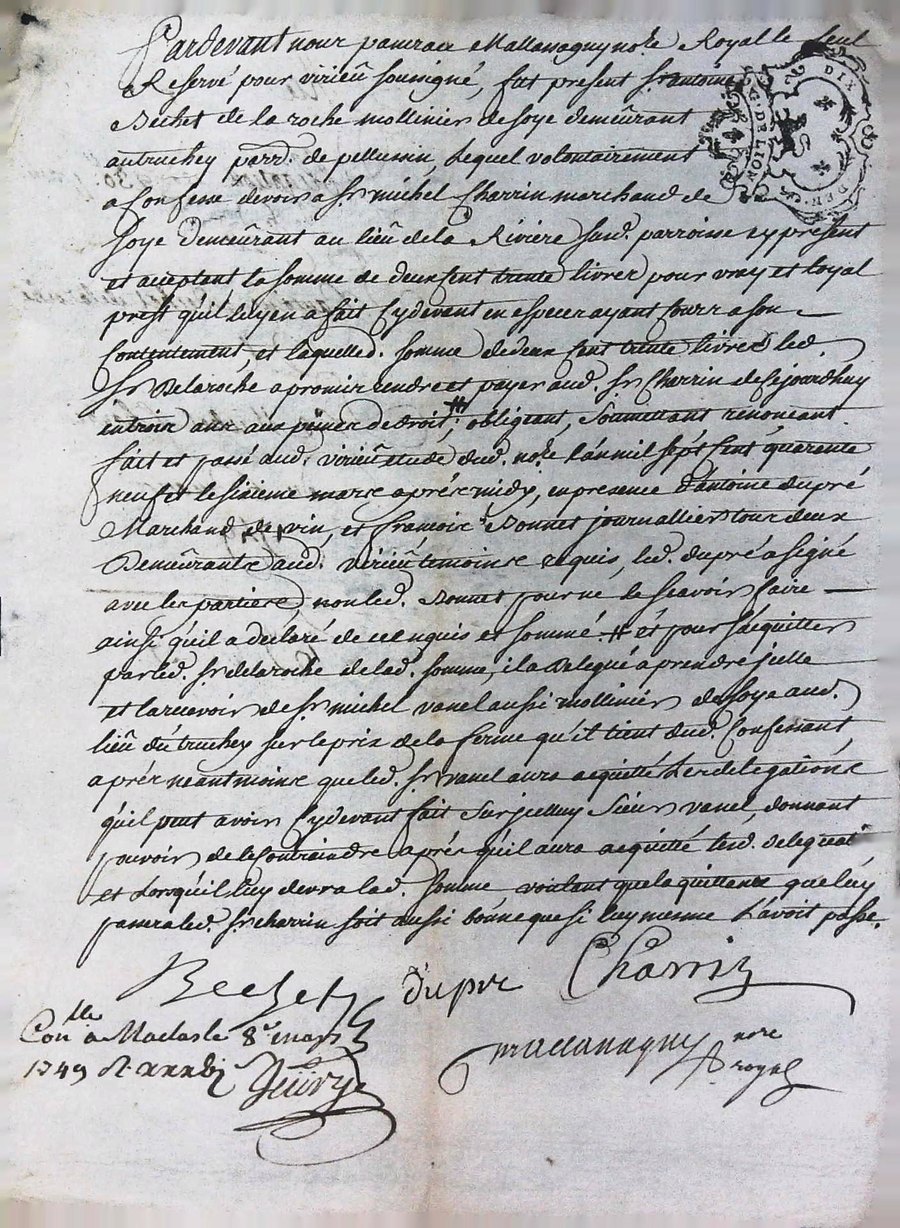 Pardevant nous pancrace Mallassagny no.re Royal le seul
Reservé pour virieu soussigné, fut present Sr. Antoine
Bechet de la roche mollinier de soye demeûrant
autruchey parr. de pellussin, Lequel volontairement
a Confessé devoir a Sr. michel Charrin marchand de
soye demeûrant au lieû de la Riviere susd. parroisse icy present
et aceptant la somme de deux Cent trente livres pour vray et loyal
prest qu'il luy en a fait Cydevant en especes ayant Cours a son
Contentement, et laquelled. somme de deux Cent trente livres led.
Sr. Delaroche a promis rendre et payer aud. Sr. Charrin de Cejourdhuy
en trois ans aux peines de droit, # obligeant, Soumettant, renonceant
fait et passé aud. virieû etude dud. no.re L'an mil sept Cent quarante
neuf et le sixieme mars aprés midy, en presence d'antoine dupré
Marchand de vin, et francois Bonnet journallier tous deux
Demeûrants aud. virieû, temoins requis, led. dupré a signé
avec les parties, non led. Bonnet pour ne le scavoir faire
ainsi qu'il a declaré de ce enquis et sommé # et pour s'acquitter
par led. Sr. delaroche de lad. somme, il a Delegué a prendre jcelle
et la recevoir de Sr. michel vanel aussi mollinier de soye aud.
lieû du truchey sur le prix de la ferme qu'il tient dud. Confessant
aprés neantmoins que led. Sr. vanel aura acquitté Les delegations
qu'il peut avoir Cydevant fait Sur jcelluy Sieur vanel, donnant
pouvoir de le Contraindre aprés qu'il aura acquitté lesd. delegaõns
et Lorsqu'il luy devra lad. somme voulant que la quittance que luy
passera led. Sr. charrin soit aussi bonne que si luy mesme L'avoit passé.
Bechet dupré Charrin
Con.lle a Maclas le 8e mars
1749
mallassagny no.re royal
G. DE LION
DIX DEN